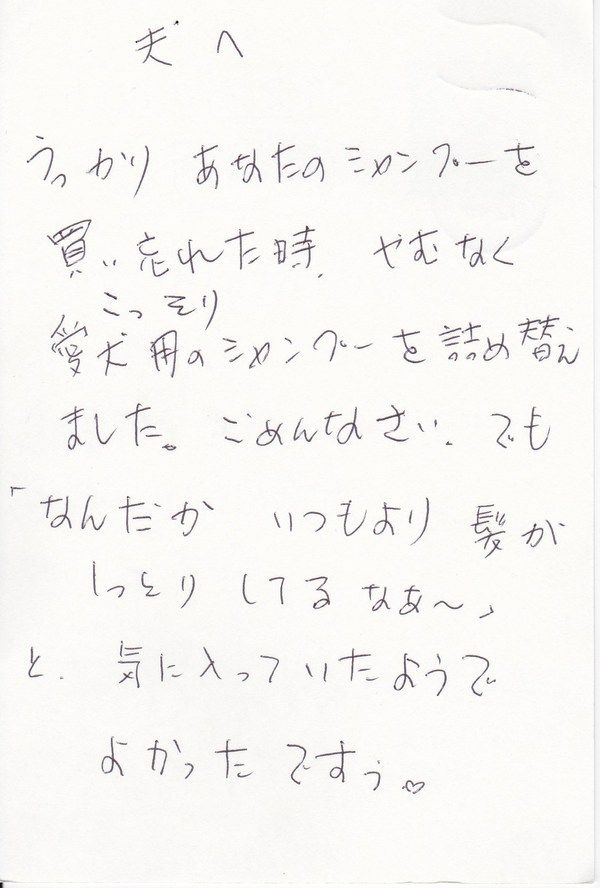 夫へ
うっかり あなたのシャンプーを
買い忘れた時、やむなく
こっそり
愛犬用のシャンプーを詰め替え
ました。ごめんなさい、でも
「なんだか いつもより 髪が
しっとり してる なあ〜」
と、気に入っていたようで
よかった ですぅ。♡